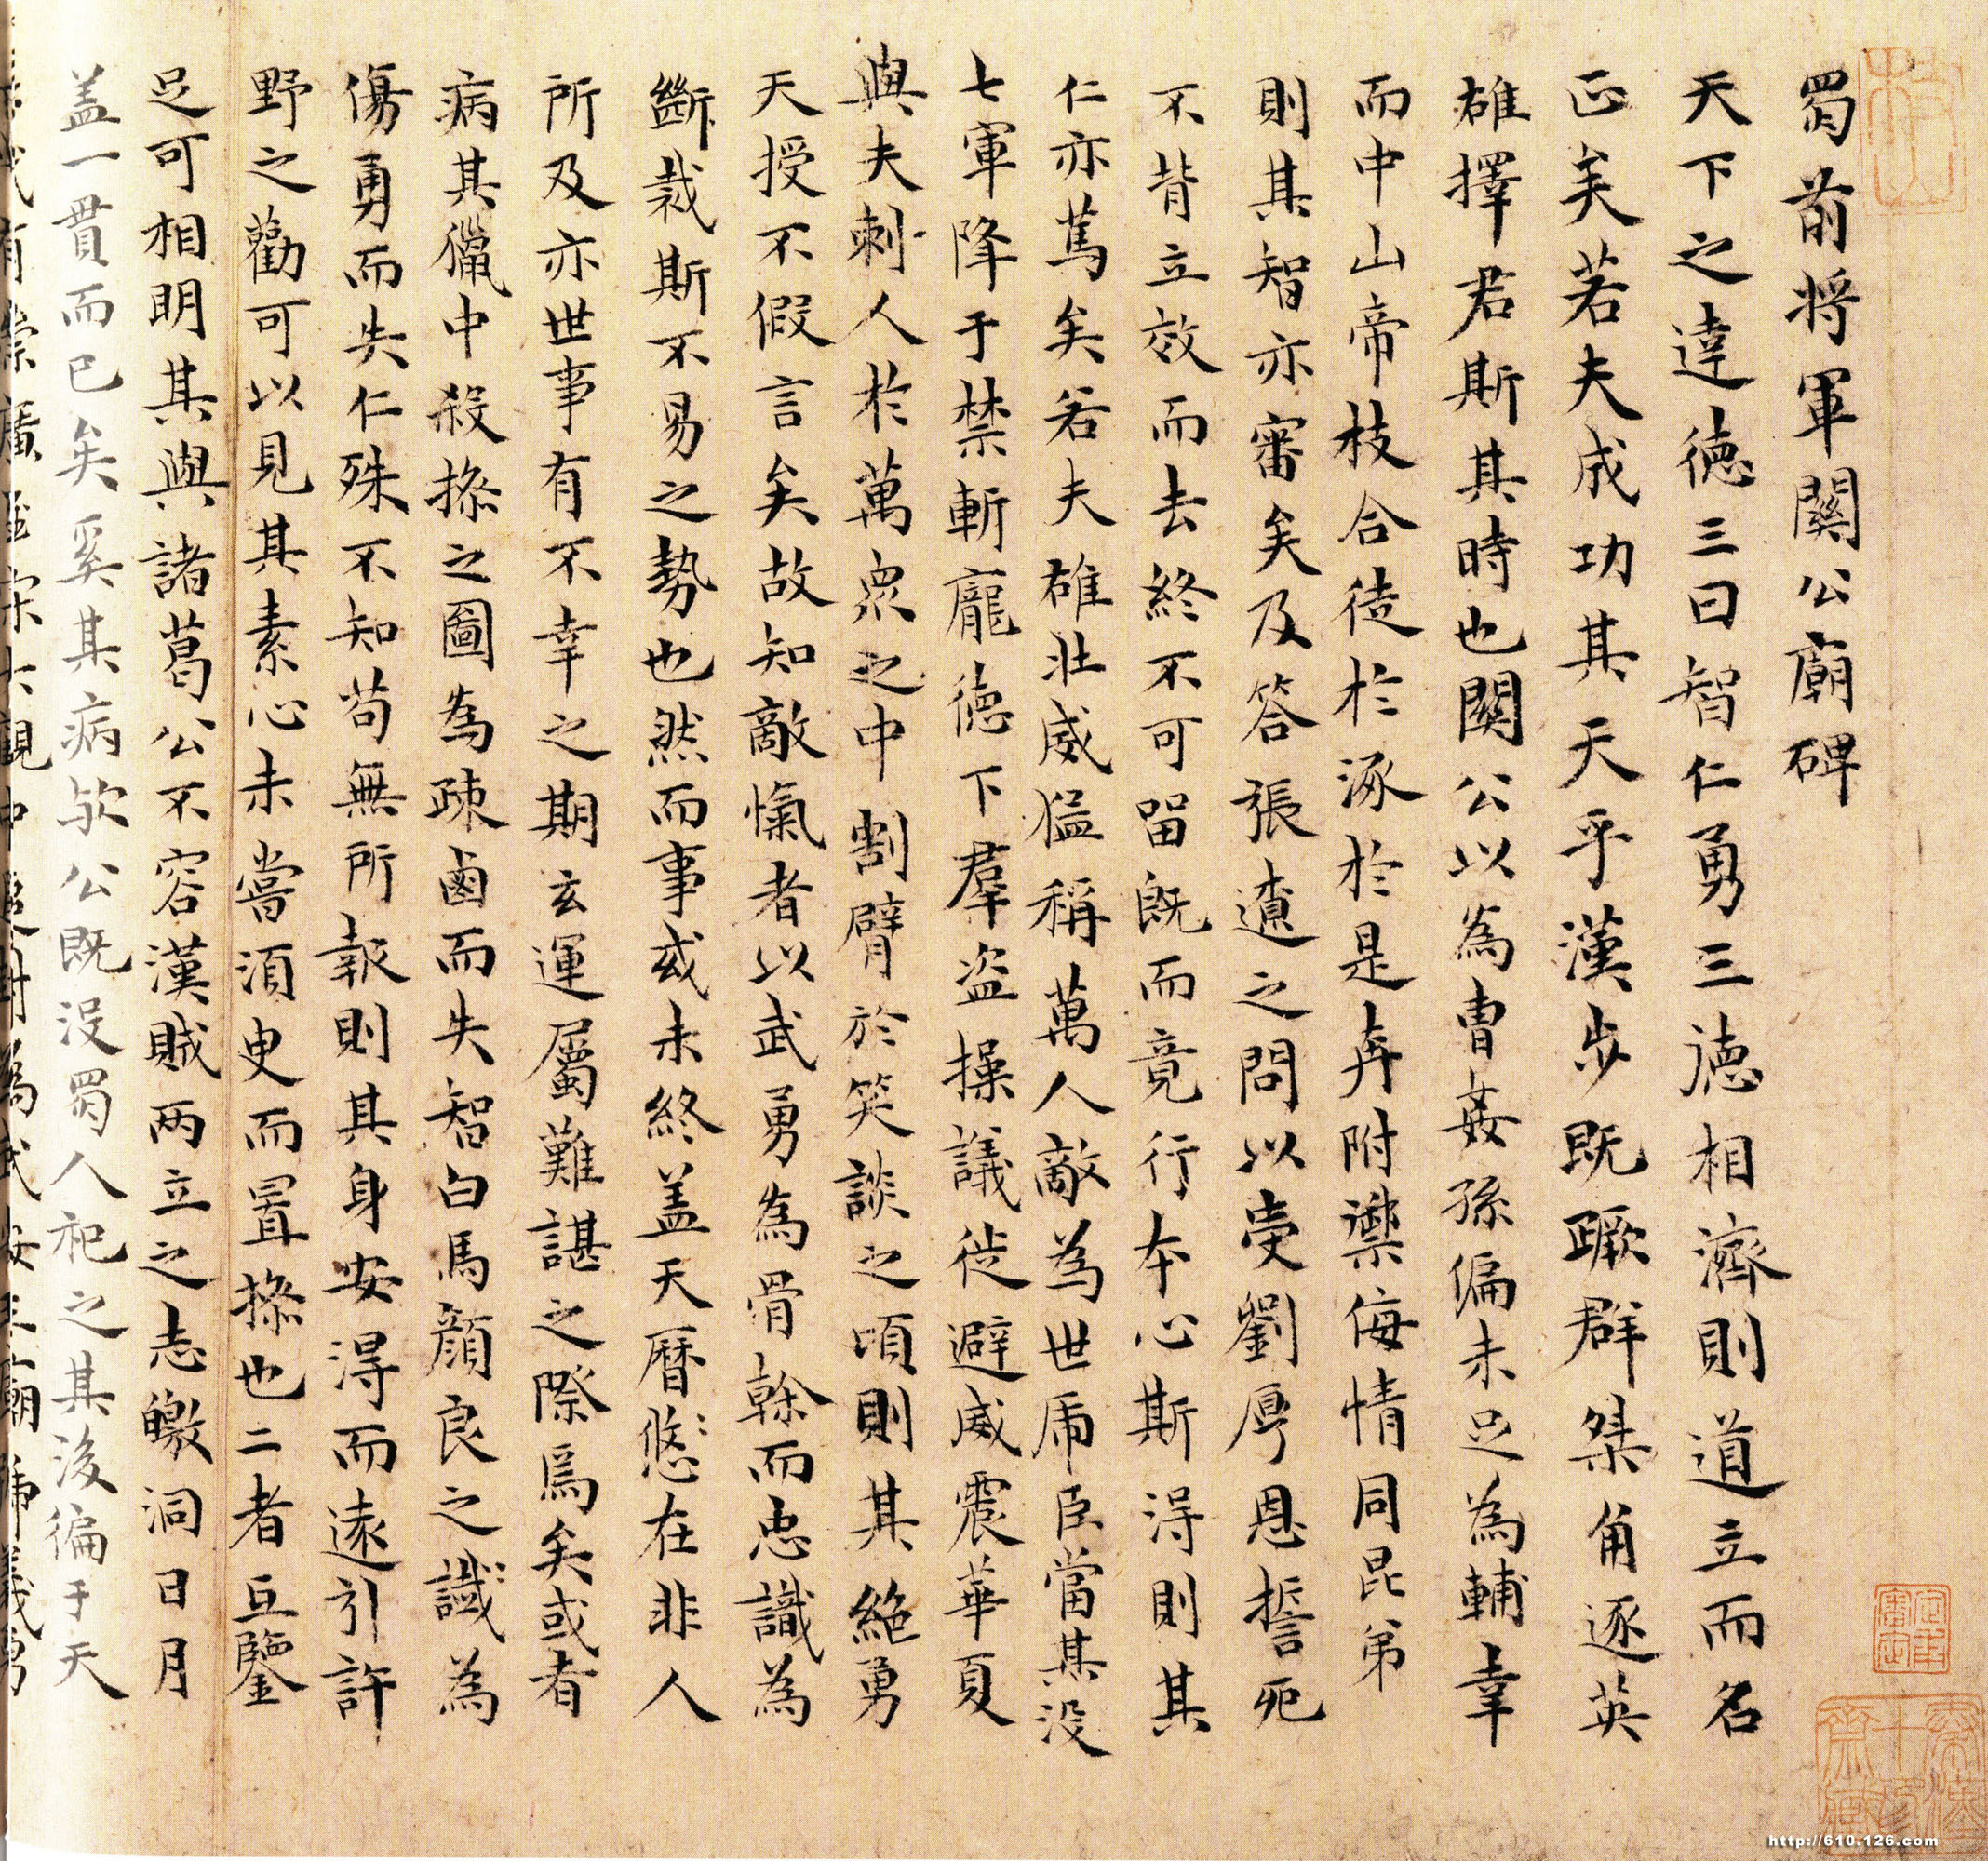 蜀前將軍關公廟碑
天下之達德三曰智仁勇三德相濟則道立而名
正矣若夫成功其天乎漢步既蹶群桀角逐英
雄擇君斯其時也關公以為曹姦孫偏未足為輔幸
而中山帝枝合徒於涿於是奔附禦侮情同昆弟
則其智亦審矣及答張遼之問以受劉厚恩誓死
不背立效而去終不可留既而竟行本心斯得則其
仁亦篤矣若夫雄壯威猛稱萬人敵為世虎臣當其没
七軍降于禁斬龐德下羣盜操議徙避威震華夏
與夫刺人於萬衆之中割臂於笑談之頃則其絶勇
天授不假言矣故知敵愾者以武勇為骨榦而忠識為
斷裁斯不易之勢也然而事或未終盖天曆悠在非人
所及亦世事有不幸之期玄運屬難諶之際焉矣或者
病其獵中殺操之圖為疎鹵而失智白馬顔良之誠為
傷勇而失仁殊不知苟無所報則其身安得而遠引許
野之勸可以見其素心未嘗須臾而置操也二者互鑒
足可相明其與諸葛公不容漢賊两立之志皦洞日月
盖一貫而已矣奚其病歟公既没蜀人祀之其後徧于天